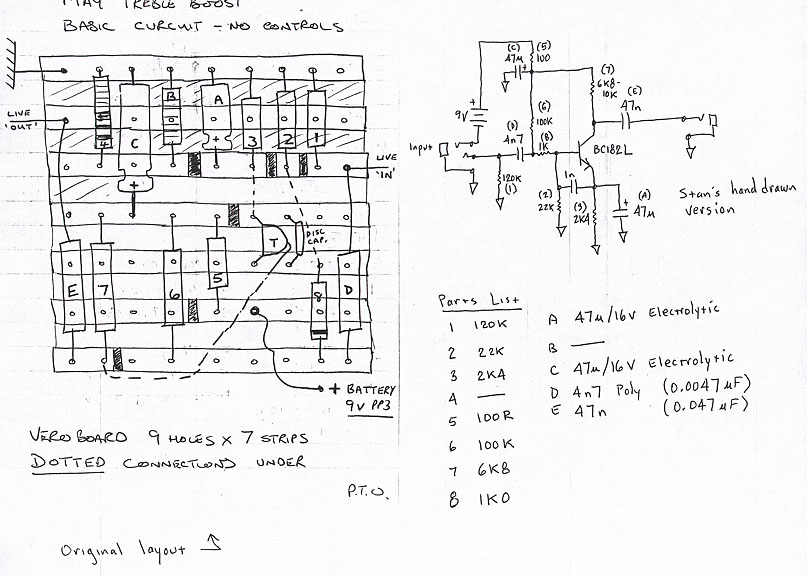 MAY TREBLE BOOST
BASIC CURCUIT - NO CONTROLS
LIVE
'OUT'
4
C
+
B
A
+
3
2
1
LIVE
'IN'
+
T
DISC
CAP.
E
7
6
5
8
D
+ BATTERY
9V PP3
VEROBOARD 9 HOLES X 7 STRIPS
DOTTED CONNECTIONS UNDER
P.T.O.
Original layout
(C)
47µ
+
(5)
100
(7)
6K8-
10K
(E)
47n
+
9V
(6)
100K
(D)
4n7
(8)
1K
Input
BC182L
120K
(1)
1n
(2)
22K
(3)
2K4
+
(A)
47µ
Stan's hand drawn
version
Parts List
1 120K
2 22K
3 2K4
4 —
5 100R
6 100K
7 6K8
8 1K0
A 47µ/16V Electrolytic
B —
C 47µ/16V Electrolytic
D 4n7 Poly (0.0047µF)
E 47n (0.047µF)